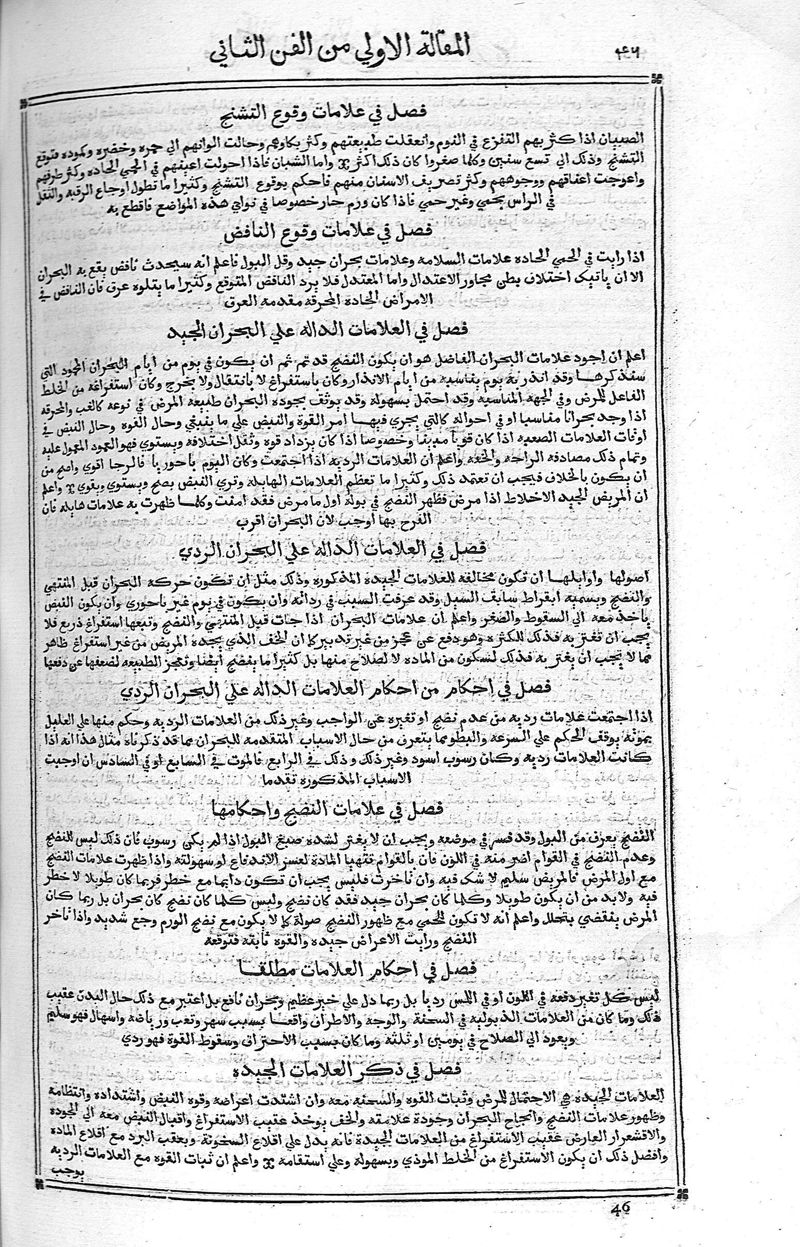 المقالة الاولي من الفن الثاني
فصل في علامات وقوع التشنج
الصبيان اذا كثر بهم التفزع في النوم وانعقلت طبيعتهم وكثر بكاوهم وحالت الوانهم الي حمره وخضره وكموده فتوقع
التشنج وذلك الي تسع سنين وكلما صغروا كان ذلك اكثر واما الشبان فاذا احولت اعينهم في الحمي الحاده وكثر طرفهم
واعوجت اعناقهم ووجوههم وكثر تصريف الاسنان منهم فاحكم بوقوع التشنج وكثيرا ما تطول اوجاع الرقبه والثقل
في الراس بحمي وغير حمي فاذا كان ورم حار خصوصا في نواي هذه المواضع فاقطع به
فصل في علامات وقوع النافض
اذا رايت في الحمي الحاده علامات السلامه وعلامات بحران جيد وقل البول فاعلم انه سيحدث نافض يقع به البحران
الا ان ياتيك اختلاف بطن مجاور الاعتدال واما المعتدل فلا يرد النافض المتوقع وكثيرا ما يتلوه عرق فان النافض في
الامراض الحاده المحرقه مقدمه العرق
فصل في العلامات الداله علي البحران الجيد
اعلم ان اجود علامات البحران الفاضل هو ان يكون النضج قد تم ثم ان يكون في يوم من ايام البحران المحمود التي
سنذكرها وقد انذر به يوم يناسبه من ايام الانذار وكان باستفراغ لا بانتقال ولا بخرج وكان استفراغه من الخلط
الفاعل للمرض وفي الجهه المناسبه وقد احتمل بسهوله وقد يوثق بجوده البحران طبيعه المرض في نوعه كالغب والمحرقه
اذا وجد بحرانا مناسبا او في احواله كالتي يجري فيها امر القوة والنبض علي ما ينبغي وحال القوه وحال النبض في
اوقات العلامات الصعبه اذا كان قويا وخصوصا اذا كان يزداد قوه وثقل اختلافه ويستوي فهو العمود المعول عليه
وتمام ذلك مصادفه الراحه والخفه واعلم ان العلامات الرديه اذا اجتمعت وكان اليوم باحوريا فالرجا اقوي واصح من
ان يكون بالخلاف فيجب ان تعتمد ذلك وكثيرا ما تعظم العلامات الهايله وتري النبض يصح ويستوي ويقوي واعلم
ان المريض الجيد الاخلاط اذا مرض فظهر النضج في بوله اول ما مرض فقد امنت وكلما ظهرت به علامات هايله فان
الفرح بها اوجب لان البحران اقرب
فصل في العلامات الداله علي البحران الردي
اصولها واوايلها ان تكون مخالفه للعلامات الجيدة المذكوره وذلك مثل ان تكون حركه البحران قبل المنتهي
والنضج ويسميه ابقراط سابق السبل وقد عرفت السبب في ردائه وان يكون في يوم غير باحوري وان يكون النبض
ياخذ معه الي السقوط والصغر واعلم ان علامات البحران اذا جات قبل المنتهي والنضج وتبعها استفراغ ذريع فلا
يجب ان تغتر به فذلك للكثره وهو دفع عن عجز من غير تدبير كما ان الخف الذي يجده المريض من غير استفراغ ظاهر
مما لا يجب ان يغتر به فذلك لسكون من الماده لا لصلاح منها بل كثيرا ما ينضج ايضا وتعجز الطبيعه لضعفها عن دفعها
فصل في احكام من احكام العلامات الداله علي البحران الردي
اذا اجتمعت علامات رديه من عدم نضج او تغيره عن الواجب وغير ذلك من العلامات الرديه وحكم منها علي العليل
بموته يوقف الحكم علي السرعه والبطو مما يتعرف من حال الاسباب المتقدمه للبحران مما قد ذكرناه مثال هذا انه اذا
كانت العلامات رديه وكان رسوب اسود وغير ذلك وذلك في الرابع فالموت في السابع او في السادس ان اوجبت
الاسباب المذكوره تقدما
فصل في علامات النضج واحكامها
النضج يعرف من البول وقد فسر في موضعه ويجب ان لا يغتر لشده صبغ البول اذا لم يكن رسوب فان ذلك ليس للنضج
وعدم النضج في القوام اضر منه في اللون فان بالقوام تتهيا المادة لعسر الاندفاع او سهولته واذا ظهرت علامات النضج
مع اول المرض فالمريض سليم لا شك فيه وان تاخرت فليس يجب ان تكون دايما مع خطر فربما كان طويلا لا خطر
فيه ولابد من ان يكون طويلا وكلما كان بحران جيد فقد كان نضج وليس كلما كان نضج كان بحران بل ربما كان
المرض ينقضي بتحلل واعلم انه لا تكون للحمي مع ظهور النضج صولة كما لا يكون مع نضج الورم وجع شديد واذا تاخر
النضج ورايت الاعراض جيده والقوه ثابته فتوقعه
فصل في احكام العلامات مطلقا
ليس كل تغير دفعه في اللون او في اللمس رديا بل ربما دل علي خير عظيم وبحران نافع بل اعتبر مع ذلك حال البدن عقيب
ذلك وما كان من العلامات الذبوليه في السحنة والوجه والاطراف واقعا بسبب سهر وتعب ورياضه واسهال فهو سليم
ويعود الي الصلاح في يومين او ثلثه وما كان بسبب الاحتراق وسقوط القوة فهو ردي
فصل في ذكر العلامات الجيده
العلامات الجيدة هي الاحتمال للمرض وثبات القوه والسحنه معه وان اشتدت اعراضه وقوه النبض واشتداده وانتظامه
وظهور علامات النضج وانجاح البحران وجودة علامته والخف يوجد عقيب الاستفراغ واقبال النبض معه الي الجودة
والاقشعرار العارض عقيب الاستفراغ من العلامات الجيدة فانه يدل علي اقلاع السخونة ويعقب البرد مع اقلاع الماده
وافضل ذلك ان يكون الاستفراغ من الخلط الموذي وبسهولة وعلي استقامه واعلم ان ثبات القوه مع العلامات الرديه
يوجب
46